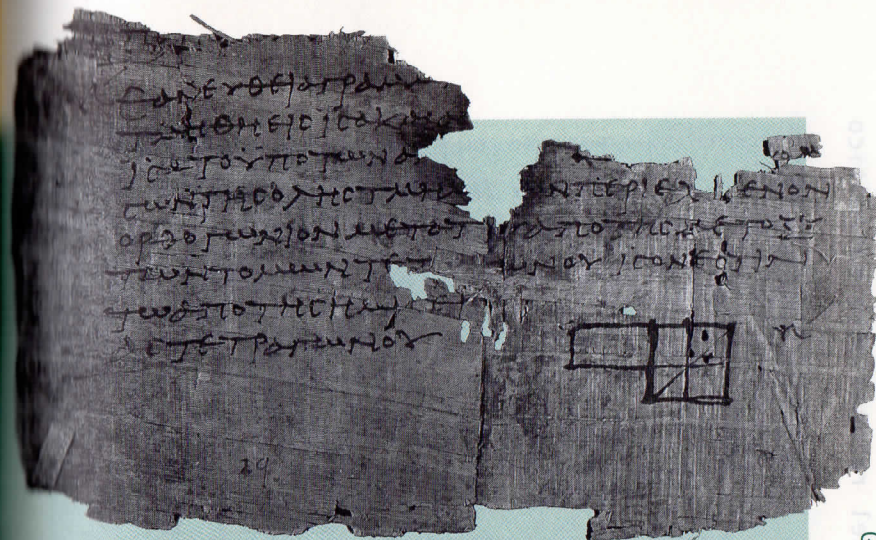 ΕΑΝ ΕΥΘΕΙΑ ΓΡΑΜ
ΤΜΗΘΗ ΕΙϹ ΙϹΑ Κ
ΙϹΑ ΤΟ ΥΠΟ ΤΩΝ Α
ϹΩΝ ΤΗϹ ΟΛΗϹ ΤΜΗ ΩΝ ΠΕΡΙΕΧ ΜΕΝΟΝ
ΟΡΘΟΓΩΝΙΟΝ ΜΕΤΑ ΤΟΥ ΑΠΟ ΤΗϹ ΜΕΤΟΞΥ
ΤΩΝ ΤΟΜΩΝ ΤΕΤ ΩΝΟΥ ΙϹΟΝ ΕϹΤΙΝ
ΤΩ ΑΠΟ ΤΗϹ ΗΜΙ ΕΙ
ΑϹ ΤΕΤΡΑΓΩΝΟΥ
29